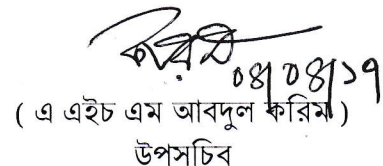 ০৪/০৪/১৭
( এ এইচ এম আবদুল করিম )
উপসচিব